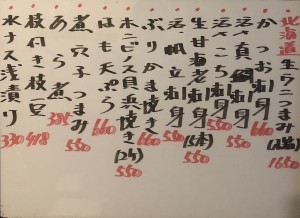 北海道生ウニつまみ(1/2箱) 1650
かつお刺身 660
活〆真鯛刺身 660
活〆こち刺身 550
生甘海老刺身(5本) 550
活帆立刺身 550
ぶりかま焼き 660
ホンビノス貝浜焼き(2ケ) 550
はも天ぷら 660
煮穴子つまみ 550
あら煮 385
枝付き枝豆 418
水ナス浅漬り 330